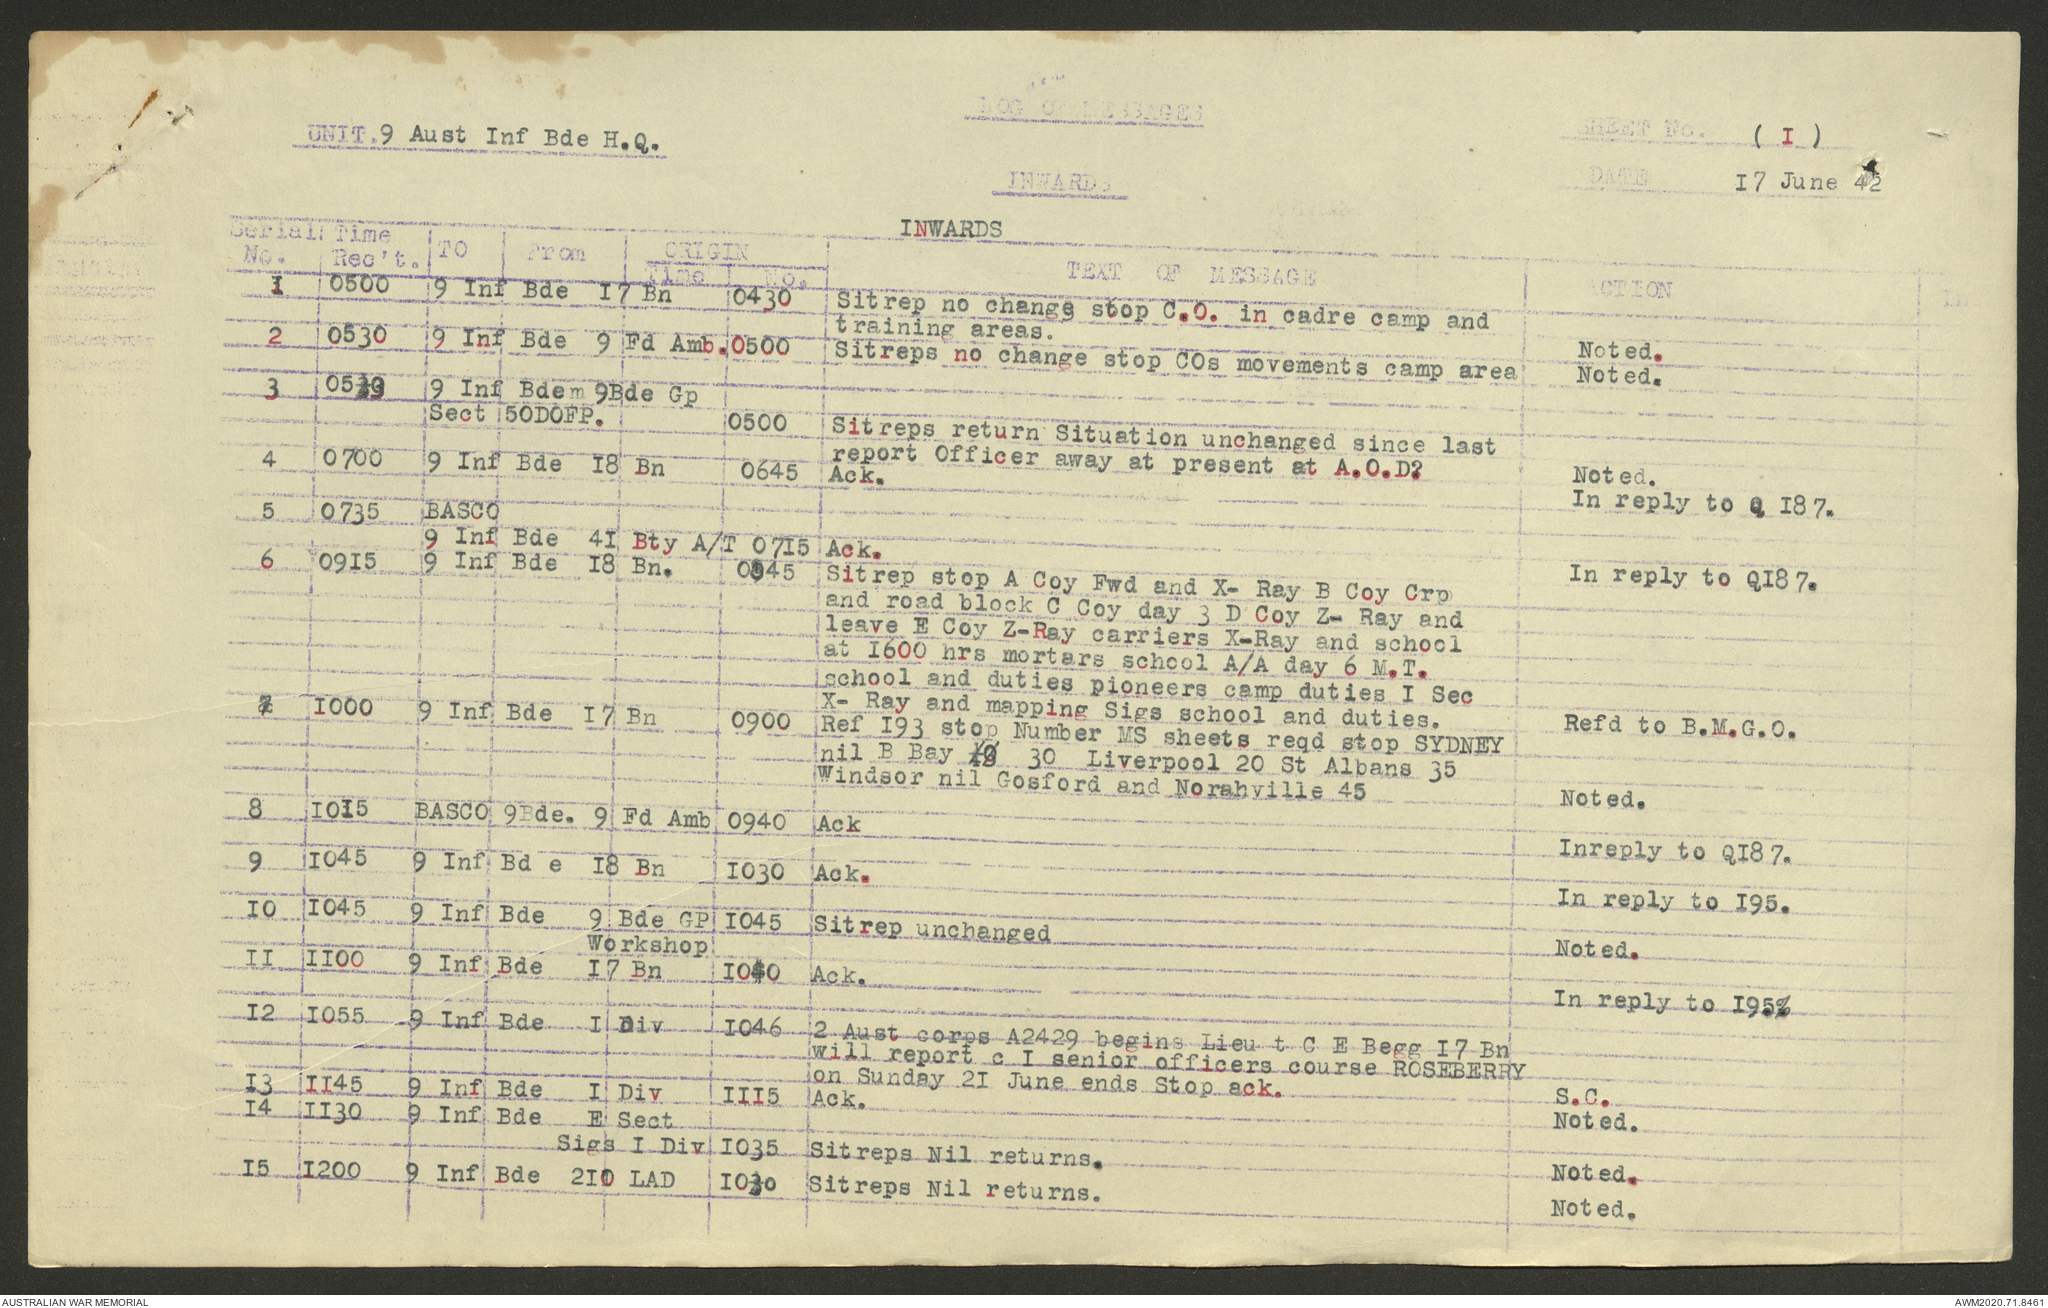 LOG OF MESSAGES
UNIT. 9 Aust Inf Bde H.Q.
SHEET No. ( I )
INWARDS
DATE I7 June 42
INWARDS
Serial No. Time Rec't. TO From ORIGIN Time No. TEXT OF MESSAGE ACTION
1 0500 9 Inf Bde I7 Bn 0430 Sitrep no change stop C.O. in cadre camp and
training areas. Noted.
2 0530 9 Inf Bde 9 Fd Amb. 0500 Sitreps no change stop COs movements camp area Noted.
3 9 Inf Bdem 9Bde Gp
Sect 50DOFP. 0500 Sitreps return Situation unchanged since last
report Officer away at present at A.O.D? Noted.
4 0700 9 Inf Bde I8 Bn 0645 Ack. In reply to Q I87.
5 0735 BASCO
9 Inf Bde 4I Bty A/T 07I5 Ack. In reply to QI87.
6 09I5 9 Inf Bde I8 Bn. 0945 Sitrep stop A Coy Fwd and X- Ray B Coy Crp
and road block C Coy day 3 D Coy Z- Ray and
leave E Coy Z-Ray carriers X-Ray and school
at I600 hrs mortars school A/A day 6 M.T.
school and duties pioneers camp duties I Sec
X- Ray and mapping Sigs school and duties. Refd to B.M.G.O.
7 I000 9 Inf Bde I7 Bn 0900 Ref I93 stop Number MS sheets reqd stop SYDNEY
nil B Bay 30 Liverpool 20 St Albans 35
Windsor nil Gosford and Norahville 45 Noted.
8 I0I5 BASCO 9Bde. 9 Fd Amb 0940 Ack Inreply to QI87.
9 I045 9 Inf Bd e I8 Bn I030 Ack. In reply to I95.
I0 I045 9 Inf Bde 9 Bde GP I045 Sitrep unchanged Noted.
Workshop
II II00 9 Inf Bde I7 Bn I040 Ack. In reply to I95.
I2 I055 9 Inf Bde I Div I046 2 Aust corps A2429 begins Lieu t C E Begg I7 Bn
will report c I senior officers course ROSEBERRY
on Sunday 2I June ends Stop ack. S.C.
I3 II45 9 Inf Bde I Div III5 Ack. Noted.
I4 II30 9 Inf Bde E Sect
Sigs I Div I035 Sitreps Nil returns. Noted.
I5 I200 9 Inf Bde 2I0 LAD I030 Sitreps Nil returns. Noted.
AUSTRALIAN WAR MEMORIAL
AWM2020.71.8461